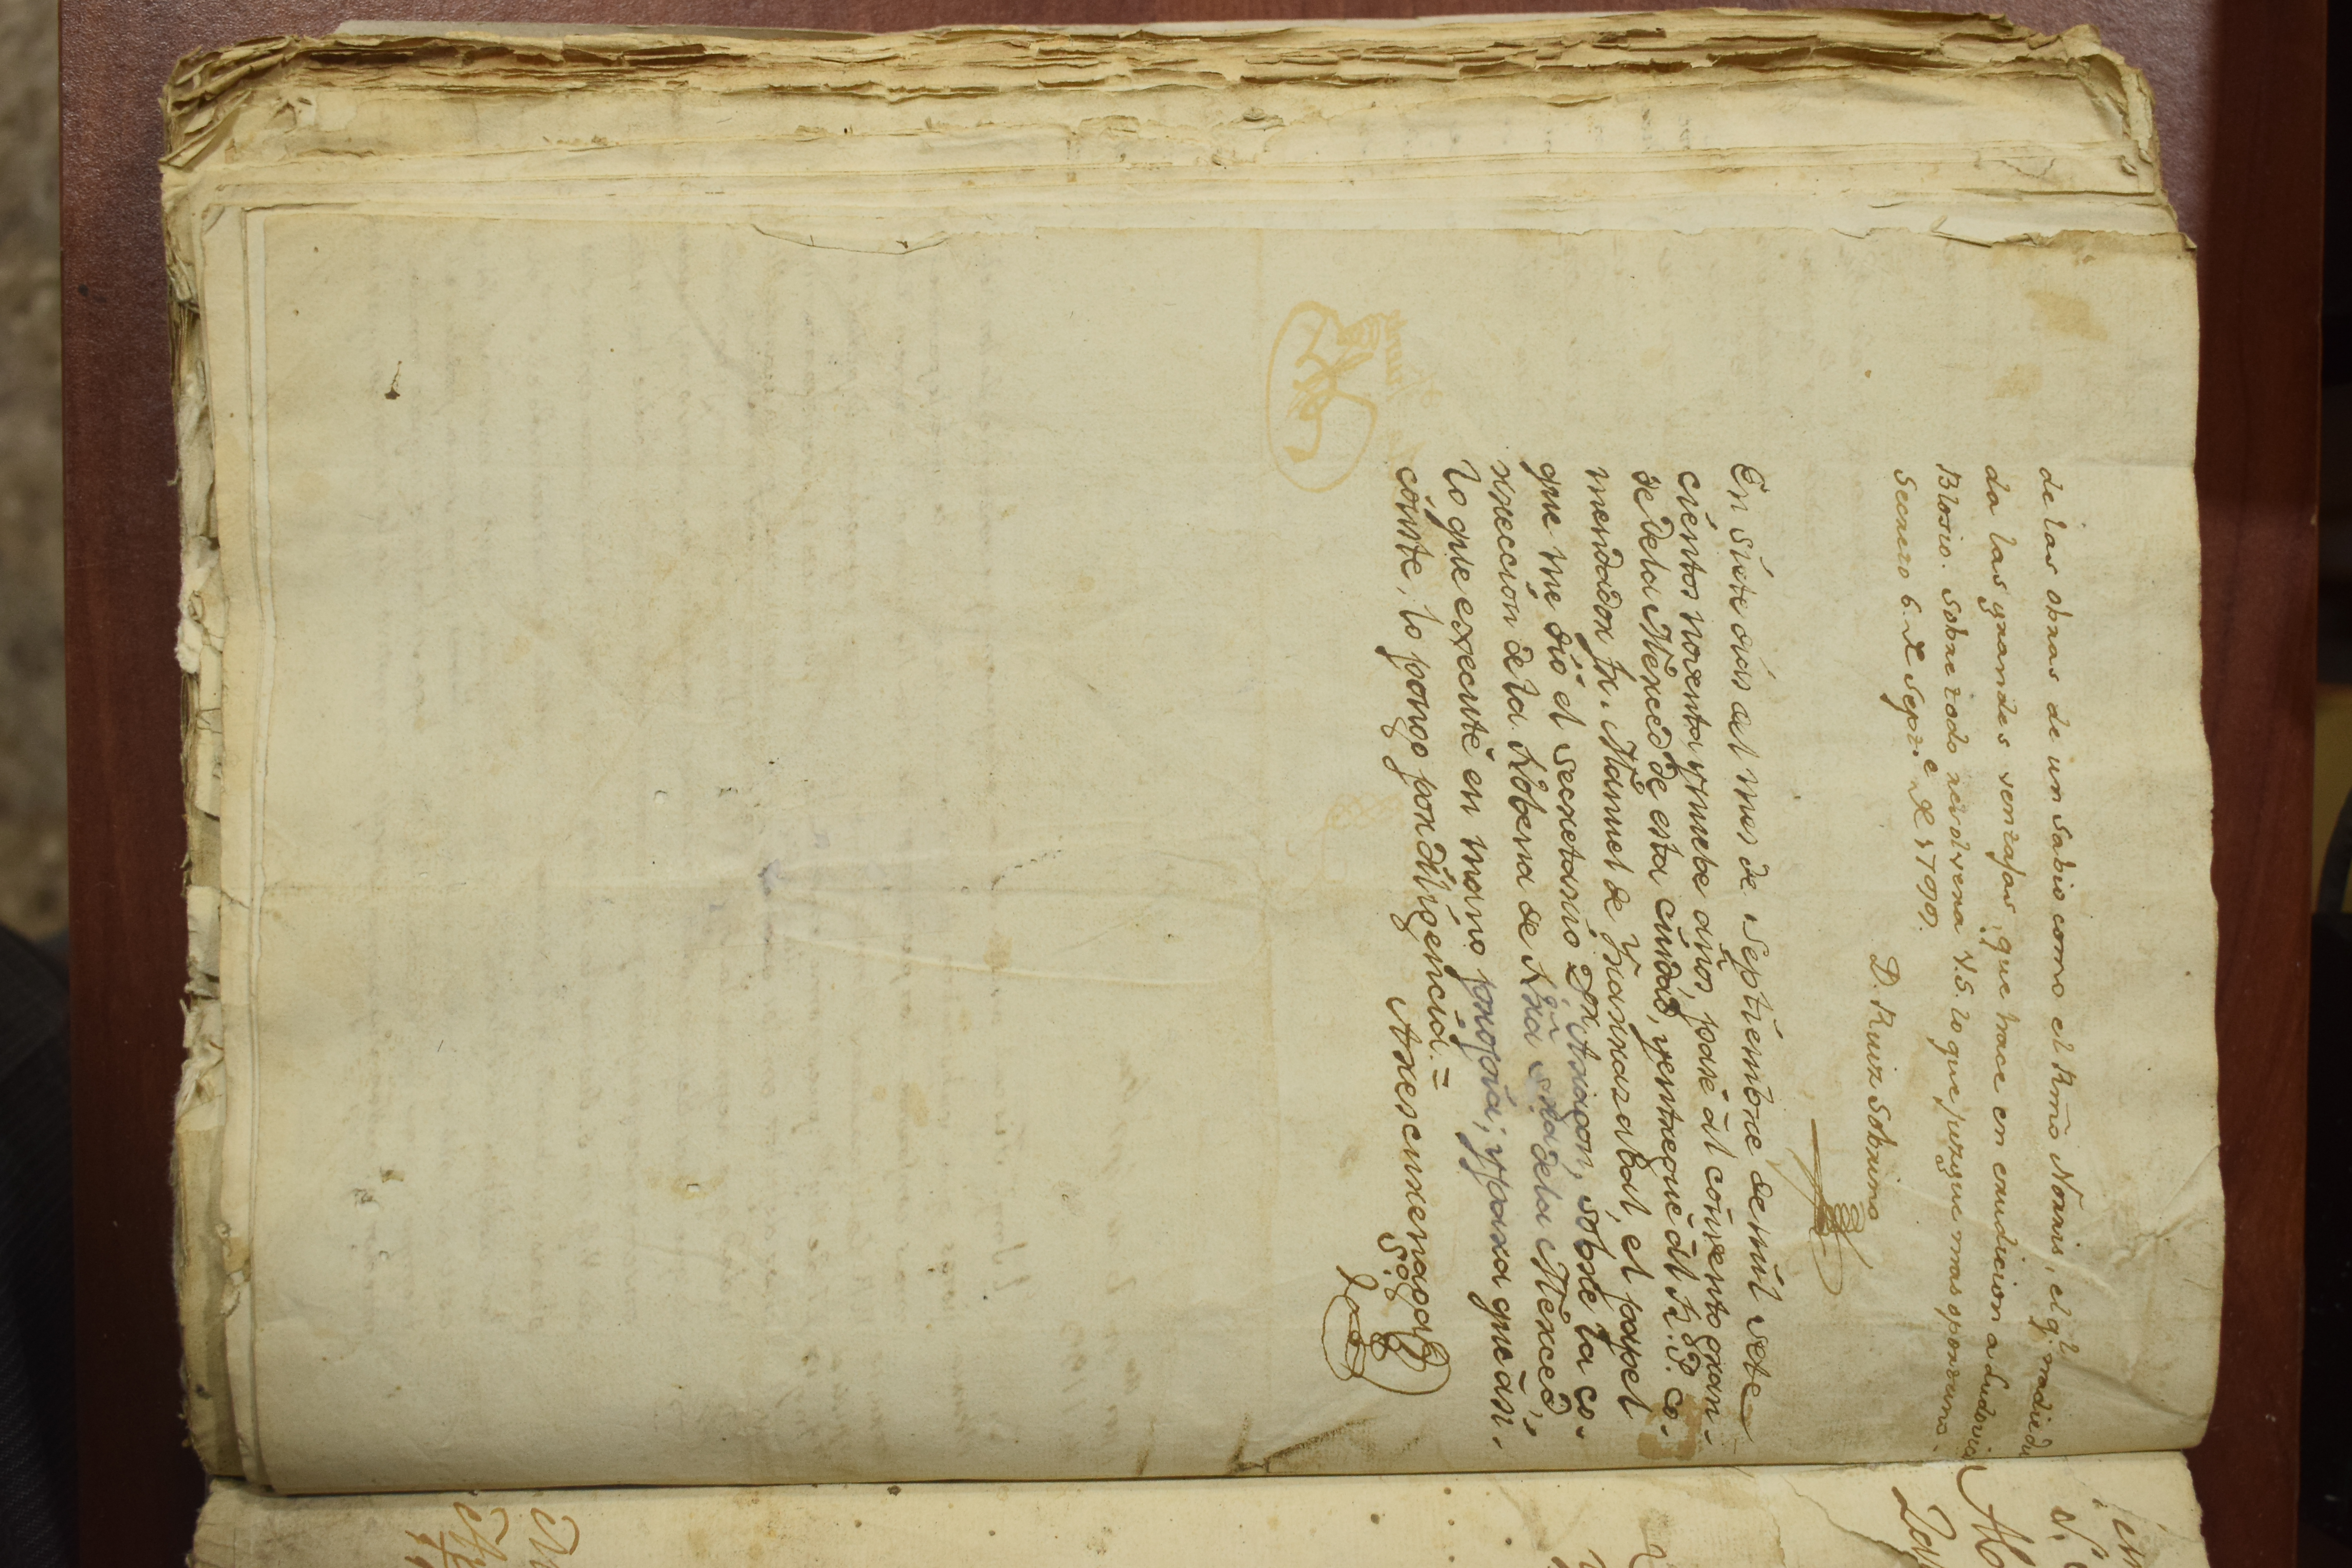 de las obras de un sabio como el Emõ Noris, el q.ͤ tradieda
da las grandes ventajas, que trace en erudicion a Ludovico
Blosio. Sobre todo resolvera V.S. lo que juzgue mas oportuno.
Secreto 6. de Sep.ͬᵉ de 1799.
D. Ruiz Sobrino
En siete dias del mes de Septiembre de mil sete
cientos noventa y nuebe años, pasè al convento gran-
de de la Merced de esta ciudad, y entregué àl R. P. Co-
mendador fr. Manuel de Ynarrazabal, el papel
que me diò el Secretario Dr. Aragon, sobre la co-
rreccion de la Nobena de Nra Sra de la Merced,
lo que executè en mano propia; y para que àsi
conste, lo pongo por diligencia. =